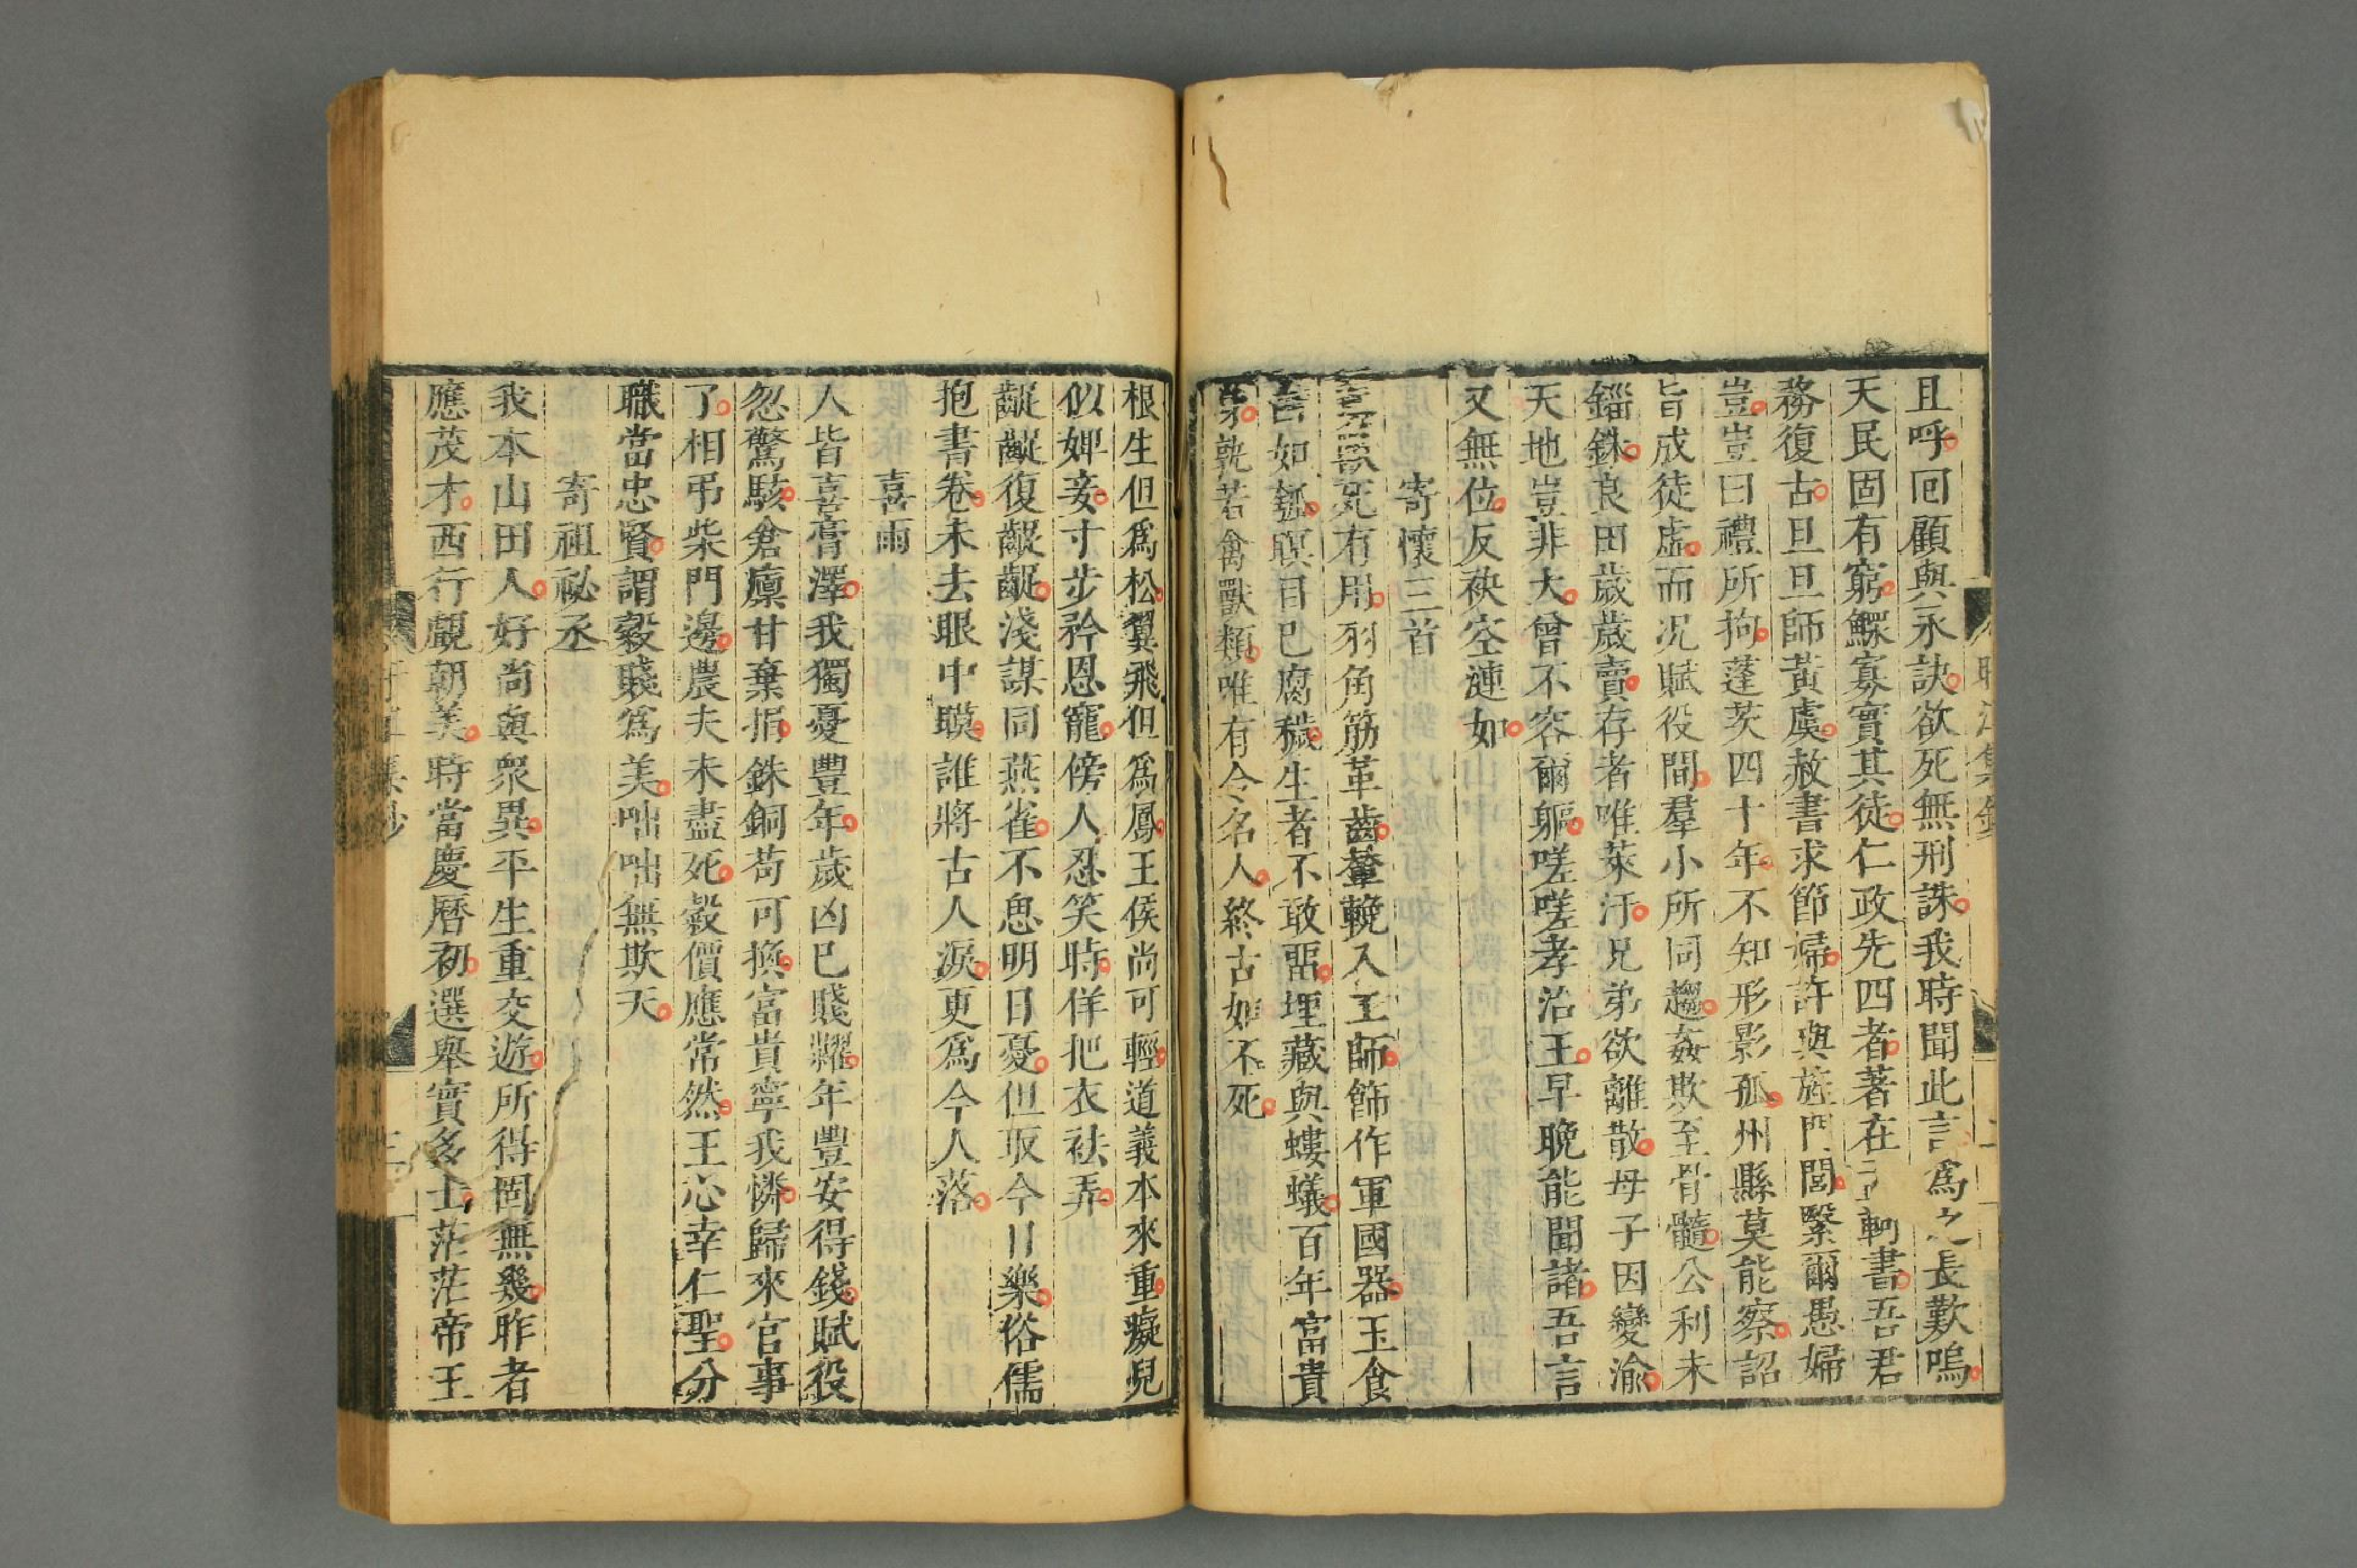 且呼囘顧與永訣欲死無刑誅我時聞此言爲之長歎嗚
天民固有窮鰥寡實其徒仁政先四者著在軻書吾君
務復古旦旦師黃虞赦書求節婦許與旌門閭繄爾愚婦
豈豈曰禮所拘蓬茨四十年不知形影孤州縣莫能察詔
旨成徒虛而况賦役間羣小所同趨姦欺至骨髓公利未
錙銖良田歲歲賣存者唯萊汙兄弟欲離散母子因變渝
天地豈非大曾不容爾軀嗟嗟孝治王早晚能聞諸吾言
又無位反袂空漣如
寄懷三首
死有用羽角筋革齒輦輓入工師飾作軍國器玉食
如瓠瞑目已腐穢生者不敢齅埋藏與螻蟻百年富貴
孰若禽獸類唯有令名人終古如不死
根生但爲松翼飛但爲鳳王侯尚可輕道義本來重癡兒
似婢妾寸步矜恩寵傍人忍笑時佯把衣袪弄
齷齪復齷齪淺謀同燕雀不思明日憂但取今日樂俗儒
抱書卷未去眼中膜誰將古人淚更爲今人落
喜雨
人皆喜膏澤我獨憂豐年歲凶已賤糶年豐安得錢賦役
忽驚駭倉廩甘棄捐銖銅苟可換富貴寧我憐歸來官事
了相弔柴門邊農夫未盡死穀價應常然王心幸仁聖分
職當忠賢謂穀賤爲美咄咄無欺天
寄祖祕丞
我本山田人好尚與衆異平生重交遊所得固無幾昨者
應茂才西行覷朝美時當慶曆初選舉實多士茫茫帝王